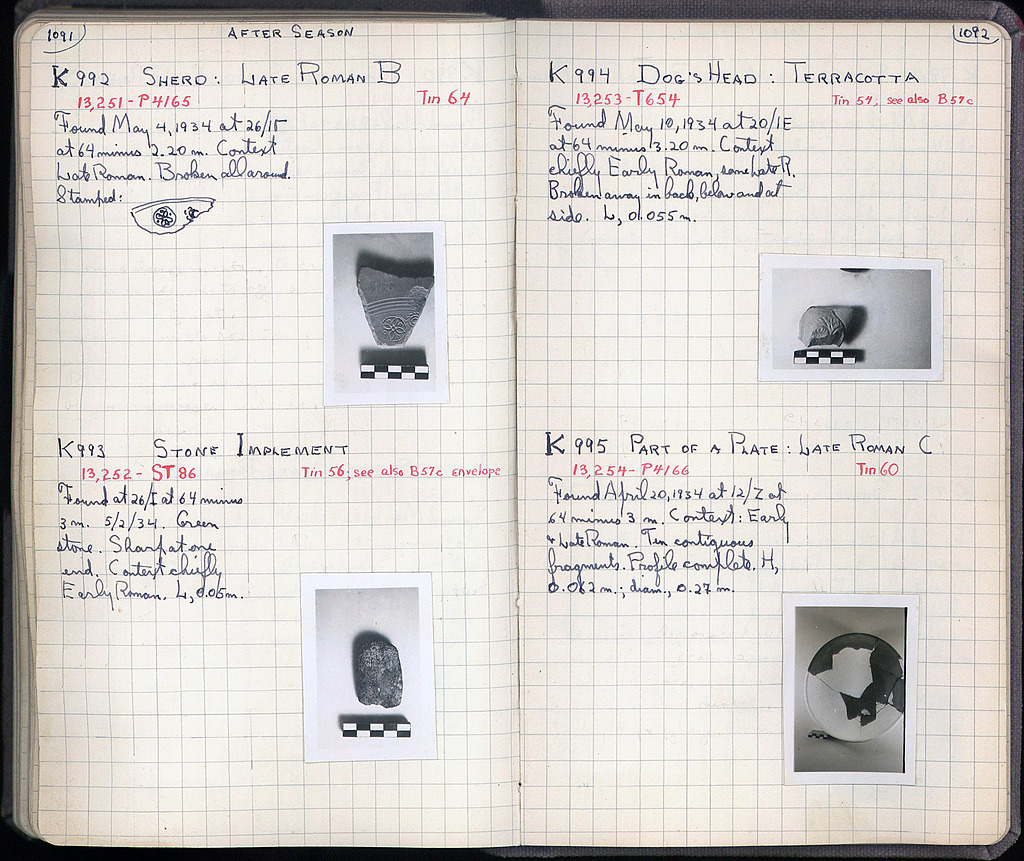 1091
AFTER SEASON
K 992 SHERD: LATE ROMAN B
13,251 - P4165 Tin 64
Found May 4, 1934 at 26/ΙΓ
at 64 minus 2.20 m. Context
Late Roman. Broken all around.
Stamped:
K993 STONE IMPLEMENT
13,252 - ST 86 Tin 56; see also B57c envelope
Found at 26/I at 64 minus
3 m. 5/2/34. Green
stone. Sharp at one
end. Context chiefly
Early Roman. L, 0.05 m.
1092
K 994 DOG'S HEAD: TERRACOTTA
13,253 - T654 Tin 54, see also B57c
Found May 10, 1934 at 20/ΙΕ
at 64 minus 3.20 m. Context
chiefly Early Roman, some Late R.
Broken away in back, below and at
side. L, 0.055 m.
K 995 PART OF A PLATE: LATE ROMAN C
13,254 - P4166 Tin 60
Found April 20, 1934 at 12/Z at
64 minus 3 m. Context: Early
+ Late Roman. Ten contiguous
fragments. Profile complete. H,
0.062 m.; diam., 0.27 m.